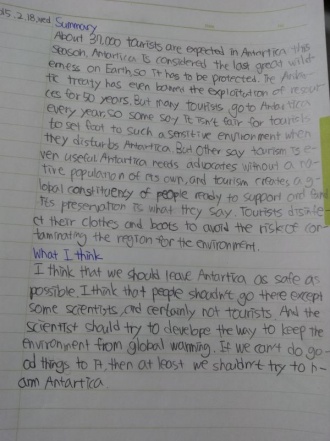 15. 2. 18. wed Summary
About 37,000 tourists are expected in Antartica this
season. Antartica is considered the last great wild-
erness on Earth, so it has to be protected. The Antar-
tic treaty has even banned the exploitation of resour-
ces for 50 years. But many tourists go to Antartica
every year, so some say it isn't fair for tourists
to set foot to such a sensitive environment when
they disturbs Antartica. But other say tourism is e-
ven useful. Antartica needs advocates without a na-
tive population of its own, and tourism creates a g-
lobal constituency of people ready to support and fund
its preservation is what they say. Tourists disinfe-
ct their clothes and boots to avoid the risk of con-
taminating the region for the environment.
What I think
I think that we should leave Antartica as safe as
possible. I think that people shouldn't go there except
some scientists, and certainly not tourists. And the
scientist should try to develope the way to keep the
environment from global warming. If we can't do go-
od things to it, then at least we shouldn't try to h-
arm Antartica.